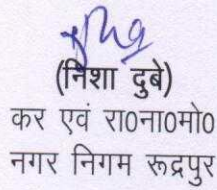 (निशा दुबे)
कर एवं रा0ना0मो0
नगर निगम रूद्रपुर